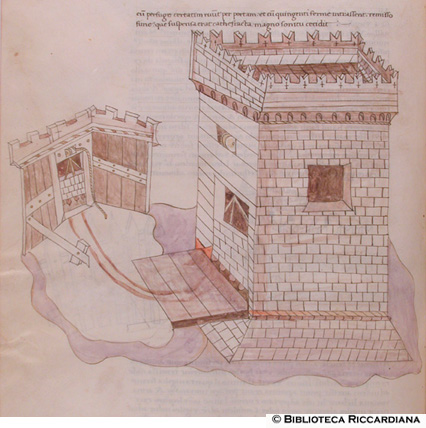 eū perfugiē certatim ruūt per portam. et cū quingenti ferme intrassent. remisso
fune: quo suspensa erat catheracta, magno sonitu cecidit
© BIBLIOTECA RICCARDIANA